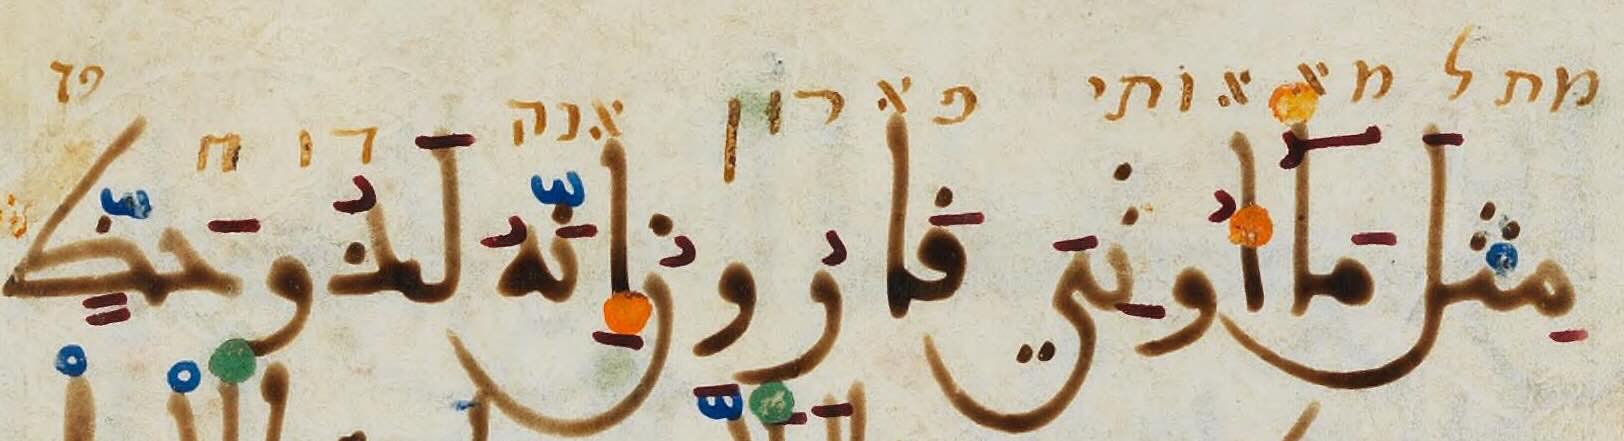 מתל מא אותי פארון אנה דו ח פד
مِثْلَ مَآ أُوتِيَ قَارُونُ إِنَّهُ لَذُو حَظٍّ